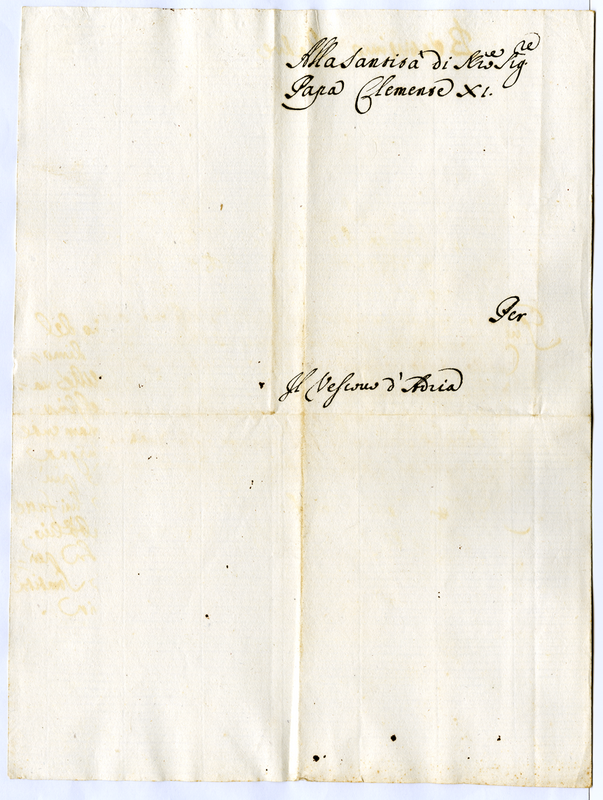 Alla Santità di N.ro Sig.re
Papa Clemente XI.
Per
Il Vescovo d'Adria